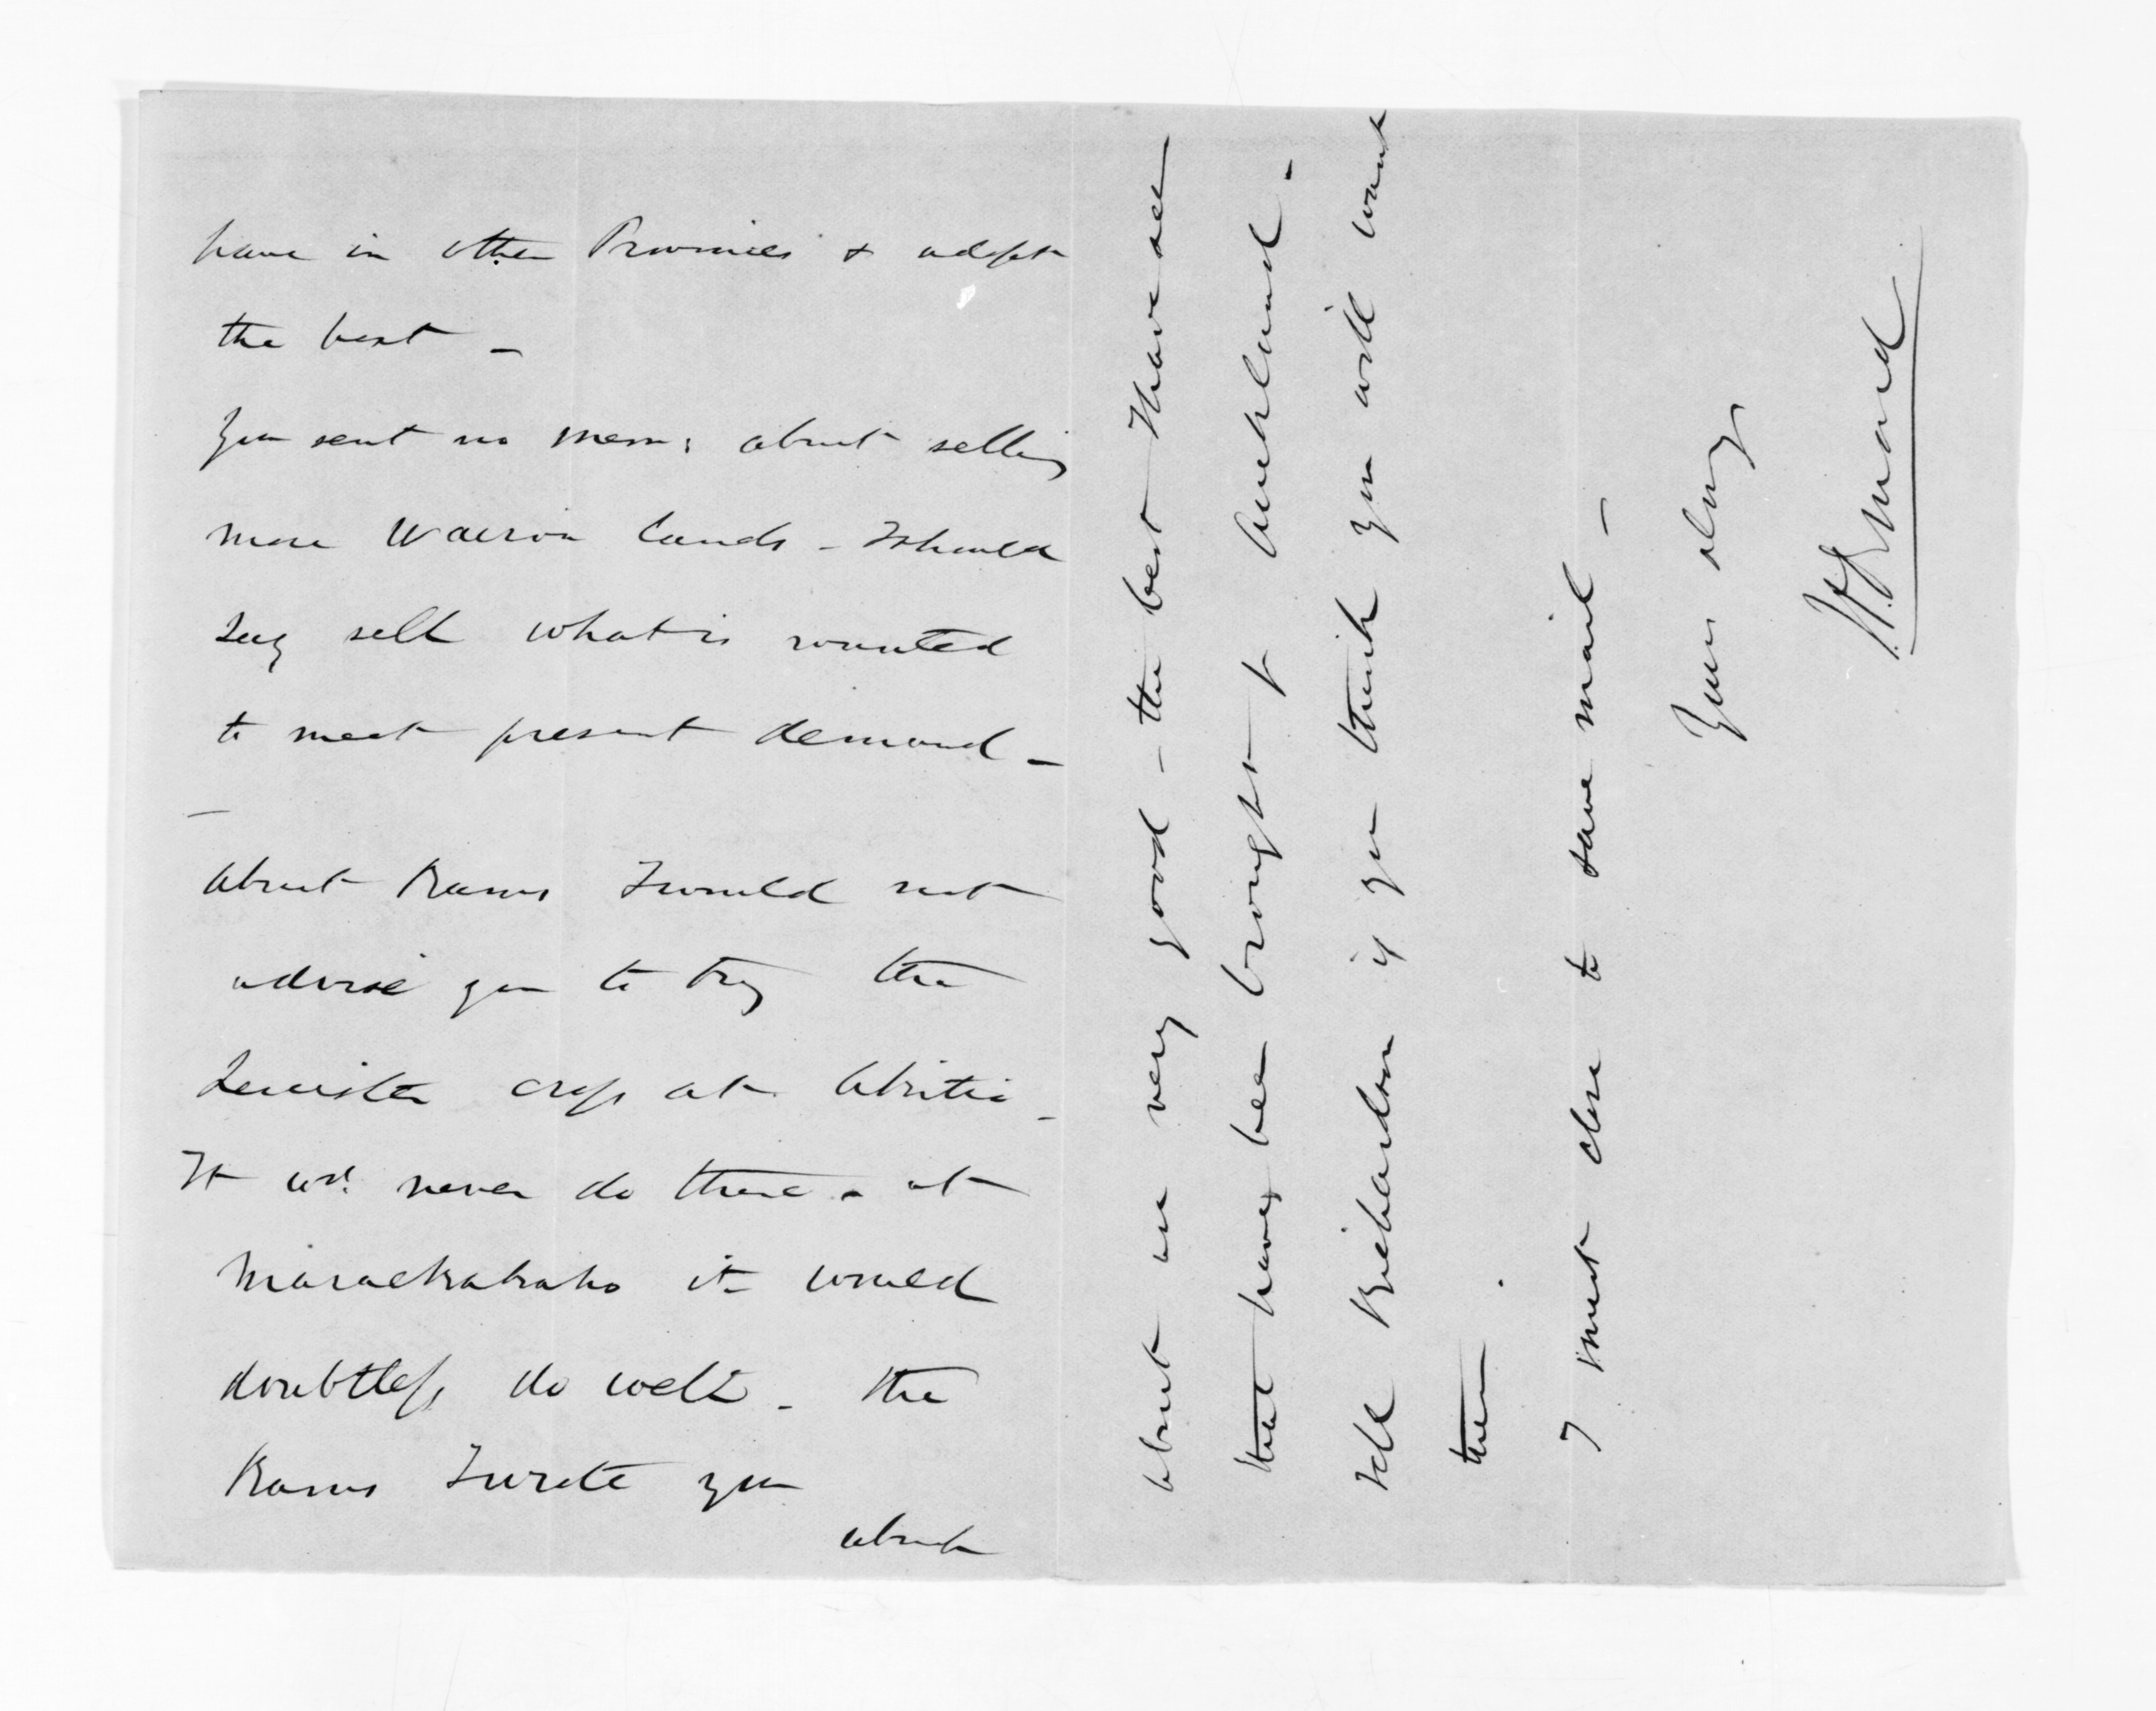 have in other Provinces & adopt
the best -
You sent no mem: about selling
more Wairoa lands - I should
say sell what is wanted
to meet present demand -
About Rams I would not
advise you to try the
Leicester cross at Akitio -
It wd. never do there - at
Maraekakaho it would
doubtless do well - the
Rams I wrote you
about
about are very good - the best I have seen
that have been brought to Auckland -
Tell Richardson if you think you will want
them.
I must close to save mail -
Yours always